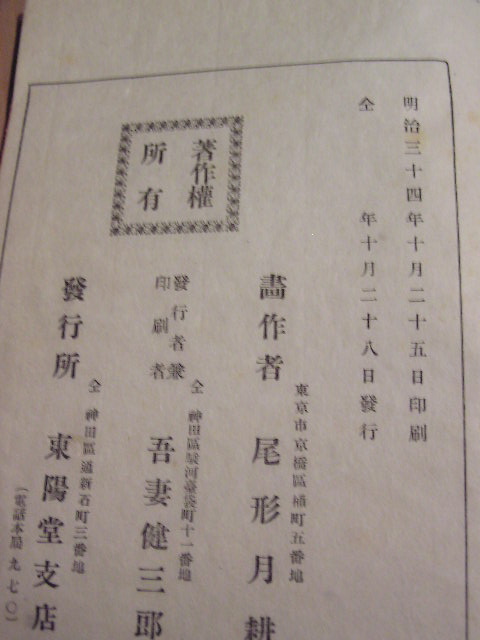 明治三十四年十月二十五日印刷
仝 年十月二十八日發行
著作權
所有
東京市京橋區桶町五番地
畫作者 尾形月耕
仝 神田區駿河臺袋町十一番地
發行者兼
印刷者 吾妻健三郎
仝 神田區通新石町三番地
發行所 東陽堂支店
(電話本局九七〇)